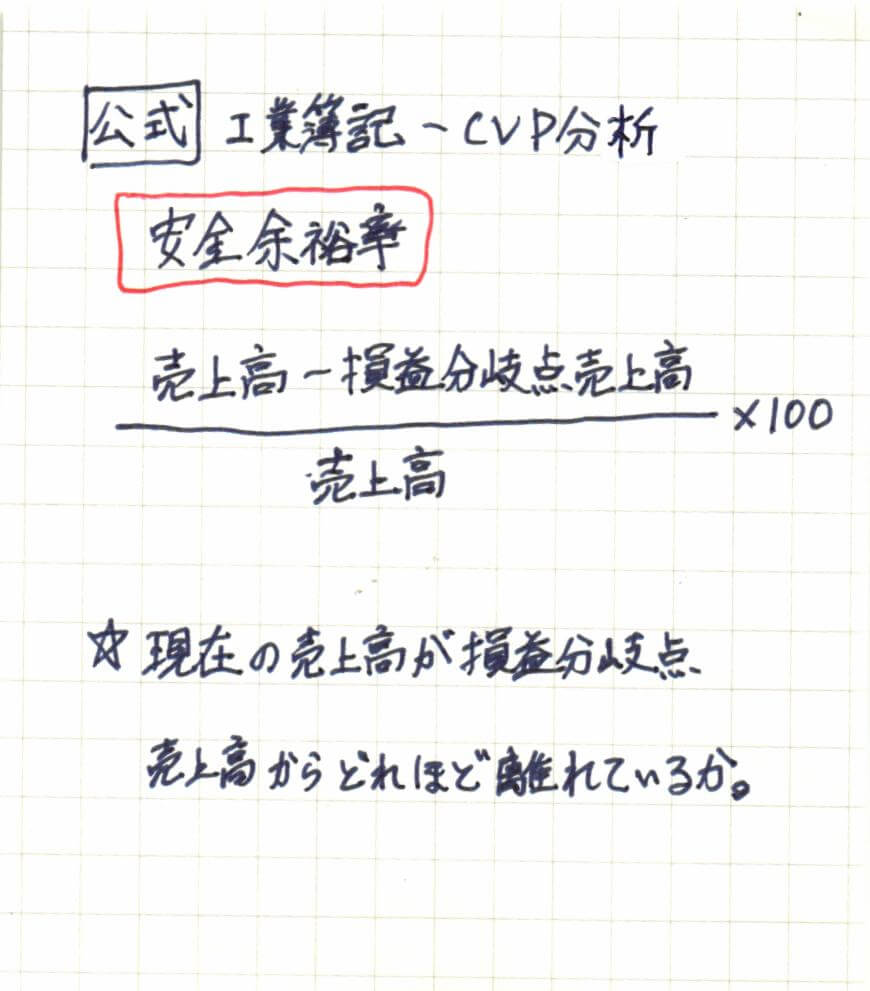 公式 工業簿記－CVP分析
安全余裕率
売上高－損益分岐点売上高
×100
売上高
☆現在の売上高が損益分岐点
売上高からどれほど離れているか。